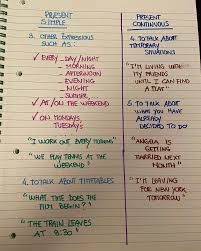 PRESENT
SIMPLE
3. OTHER EXPRESSIONS
SUCH AS:
✓ EVERY DAY/NIGHT
- MORNING
- AFTERNOON
- EVENING
- NIGHT
- SUMMER...
✓ AT/ON THE WEEKEND
✓ ON MONDAYS
TUESDAYS
"I WORK OUT EVERY MORNING"
"WE PLAY TENNIS AT THE
WEEKEND"
4. TO TALK ABOUT TIMETABLES
"WHAT TIME DOES THE
FILM BEGIN?"
"THE TRAIN LEAVES
AT 9:30"
PRESENT
CONTINUOUS
4. TO TALK ABOUT
TEMPORARY
SITUATIONS
"I'M LIVING WITH
MY FRIENDS
UNTIL I CAN FIND
A FLAT"
5. TO TALK ABOUT
WHAT YOU HAVE
ALREADY
DECIDED TO DO
"ANGELA IS
GETTING
MARRIED NEXT
MONTH"
"I'M LEAVING
FOR NEW YORK
TOMORROW"